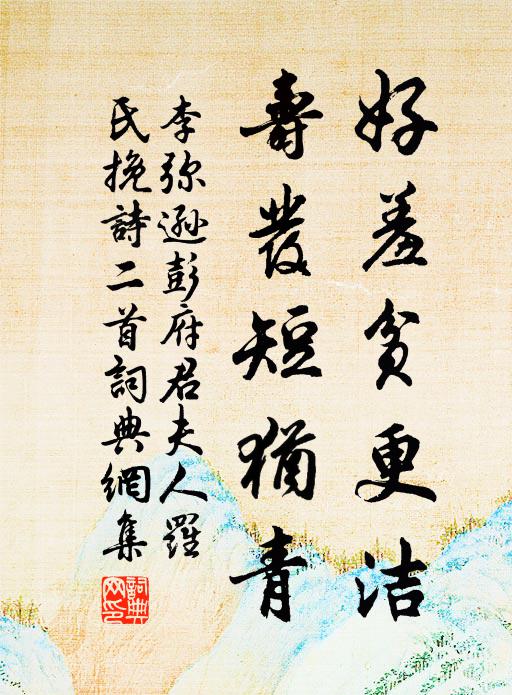 好羞贫更洁
寿发短犹青
李弥逊彭府君夫人罗
氏挽詩二首詞典網集
詞典網印